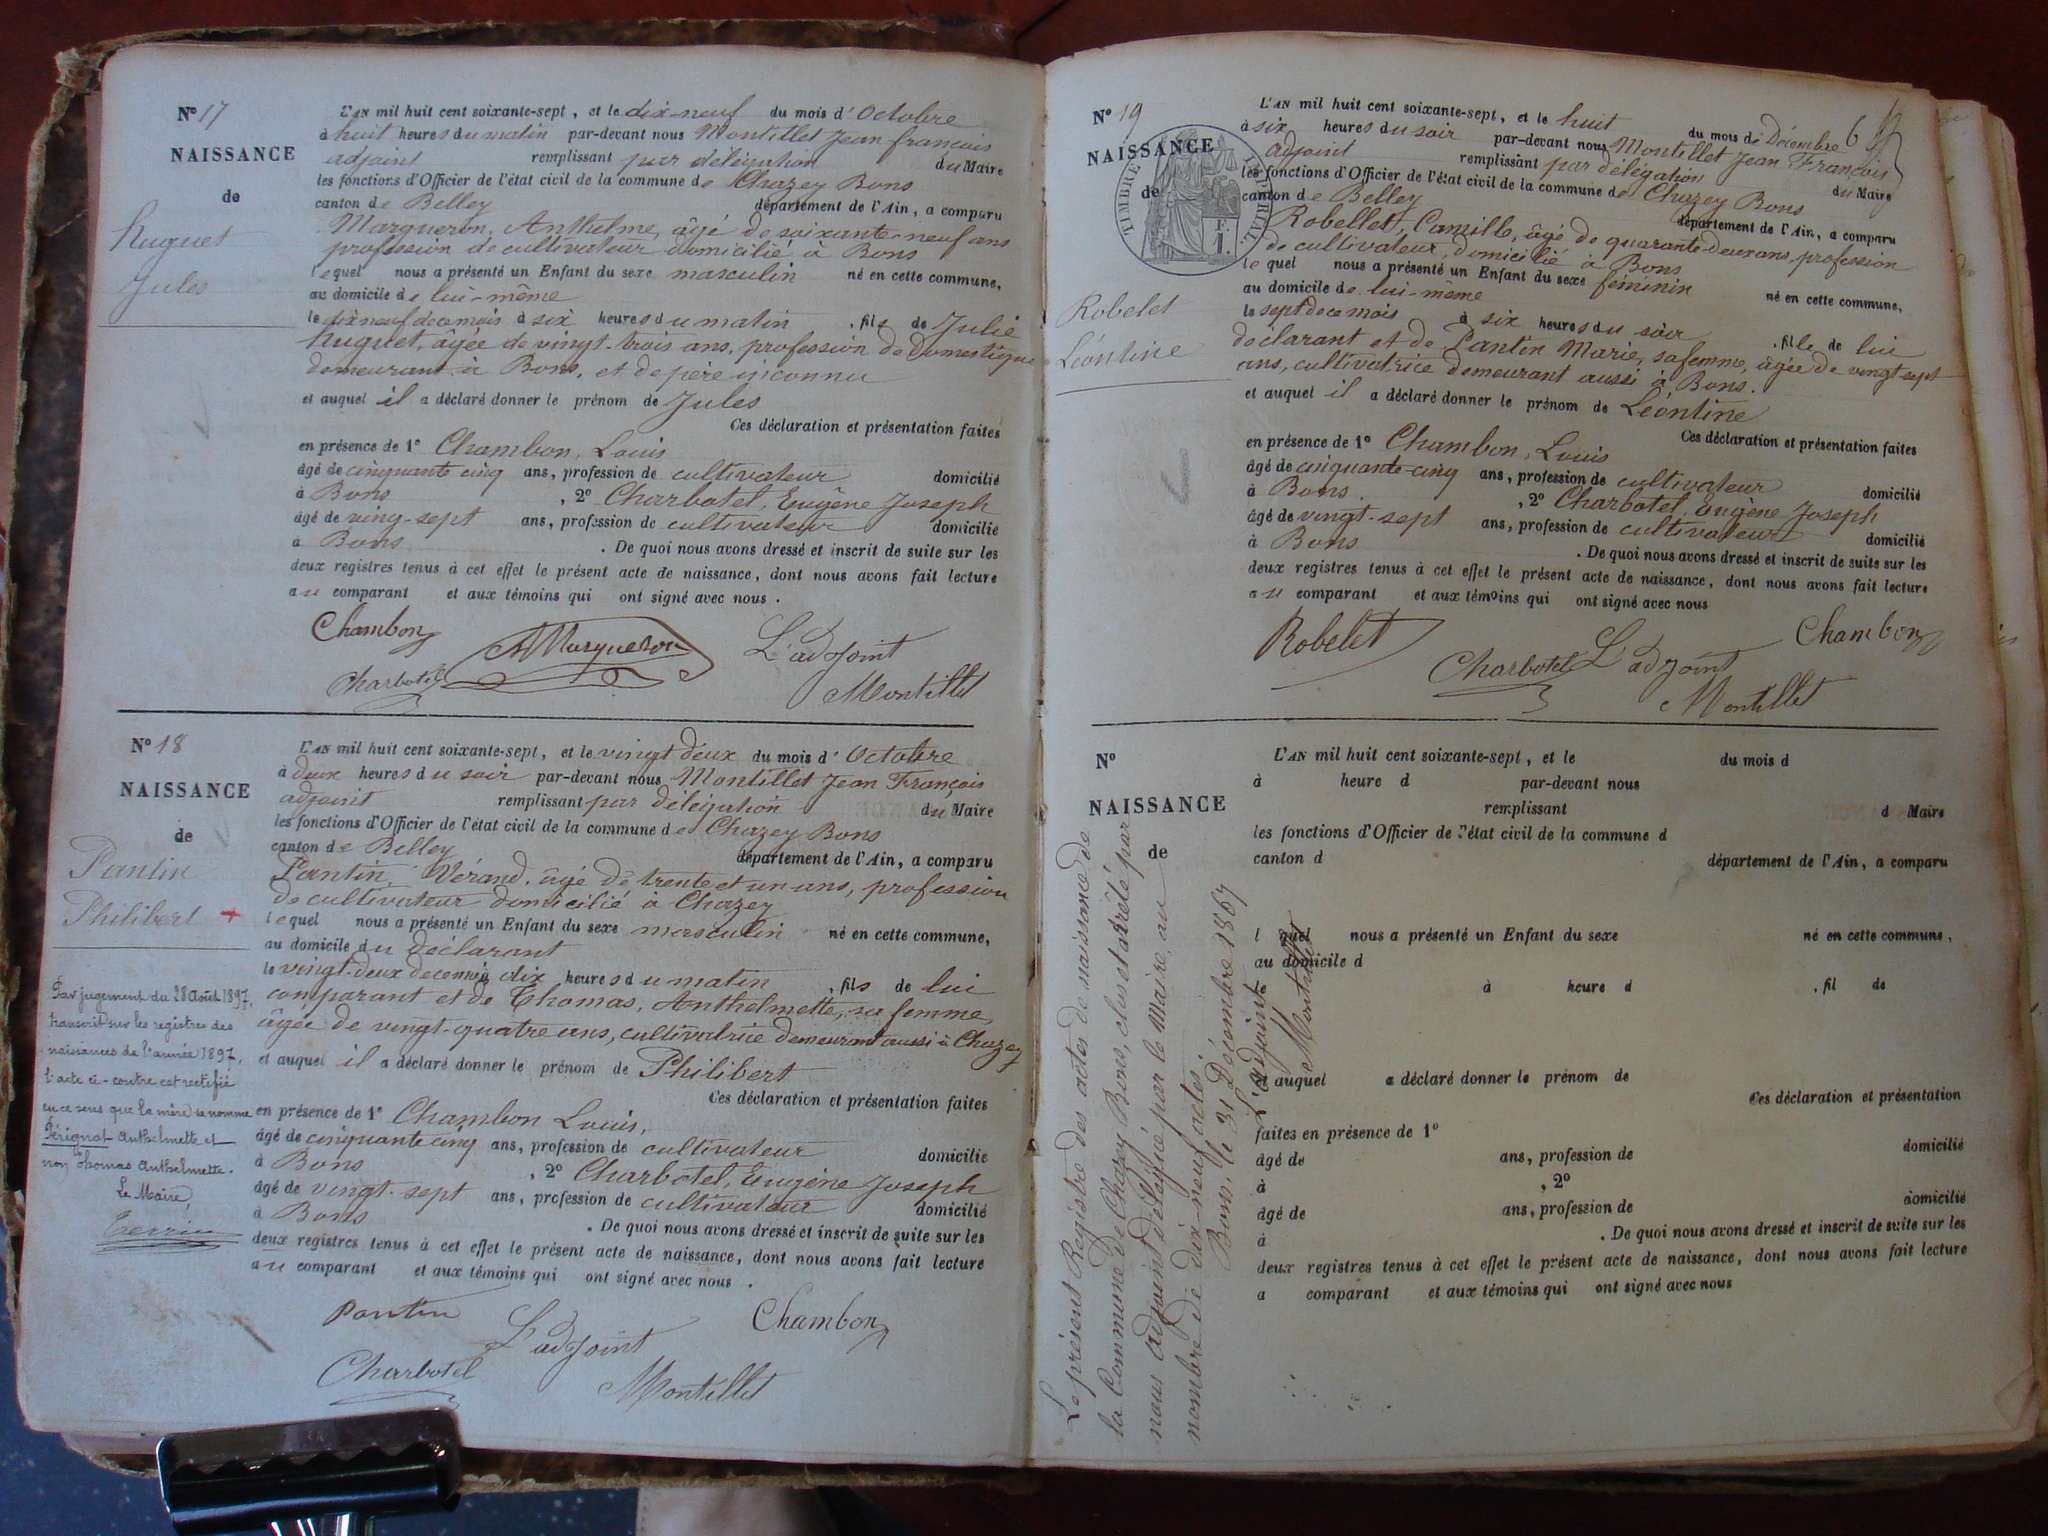 Nº 17
NAISSANCE
de
Huguet
Jules
L'AN mil huit cent soixante-sept, et le dix-neuf du mois d'Octobre
à huit heures du matin par-devant nous Montillet Jean françois
adjoint remplissant par délégation du Maire
les fonctions d'Officier de l'état civil de la commune de Chazey Bons
canton de Belley département de l'Ain, a comparu
Marqueron, Anthelme, âgé de soixante-neuf ans
profession de cultivateur domicilié à Bons
lequel nous a présenté un Enfant du sexe masculin né en cette commune,
au domicile de lui-même
le dix neuf de ce mois à six heures du matin , fils de Julie
huguet, âgée de vingt-trois ans, profession de Domestique
demeurant à Bons, et de père inconnu
et auquel il a déclaré donner le prénom de Jules
Ces déclaration et présentation faites
en présence de 1º Chambon, Louis
âgé de cinquante cinq ans, profession de cultivateur domicilié
à Bons , 2º Charbotel, Eugène Joseph
âgé de ving-sept ans, profession de cultivateur domicilié
à Bons . De quoi nous avons dressé et inscrit de suite sur les
deux registres tenus à cet effet le présent acte de naissance, dont nous avons fait lecture
au comparant et aux témoins qui ont signé avec nous .
Chambon
A Marqueron
L'adjoint
Charbotel
Montillet
Nº 18
NAISSANCE
de
Pantin
Philibert +
L'AN mil huit cent soixante-sept, et le vingt deux du mois d'Octobre
à deux heures du soir par-devant nous Montillet Jean François
adjoint remplissant par délégation du Maire
les fonctions d'Officier de l'état civil de la commune de Chazey Bons
canton de Belley département de l'Ain, a comparu
Pantin, Vérand, âgé de trente et un ans, profession
de cultivateur domicilié à Chazey
lequel nous a présenté un Enfant du sexe masculin né en cette commune,
au domicile du déclarant
le vingt-deux de ce mois à dix heures du matin , fils de lui
comparant et de Thomas, Anthelmette, sa femme,
âgée de vingt-quatre ans, cultivatrice demeurant aussi à Chazey
et auquel il a déclaré donner le prénom de Philibert
Ces déclaration et présentation faites
en présence de 1º Chambon Louis,
âgé de cinquante cinq ans, profession de cultivateur domicilié
à Bons , 2º Charbotel, Eugène Joseph
âgé de vingt-sept ans, profession de cultivateur domicilié
à Bons . De quoi nous avons dressé et inscrit de suite sur les
deux registres tenus à cet effet le présent acte de naissance, dont nous avons fait lecture
au comparant et aux témoins qui ont signé avec nous .
Par jugement du 28 Août 1897,
transcrit sur les registres des
naissances de l'année 1897,
l'acte ci-contre est rectifié
en ce sens que la mère se nomme
Pérignat Anthelmette et
non Thomas Anthelmette.
Le Maire,
Pantin
L'adjoint
Chambon
Charbotel
Montillet
Nº 19
NAISSANCE
de
TIMBRE IMPÉRIAL
1 F.
Robelet
Léontine
L'AN mil huit cent soixante-sept, et le huit du mois de Décembre 6
à six heures du soir par-devant nous Montillet Jean François
adjoint remplissant par délégation du Maire
les fonctions d'Officier de l'état civil de la commune de Chazey Bons
canton de Belley département de l'Ain, a comparu
Robellet, Camille, âgé de quarante-deux ans, profession
de cultivateur, domicilié à Bons
lequel nous a présenté un Enfant du sexe féminin né en cette commune,
au domicile de lui-même
le sept de ce mois à six heures du soir , fille de lui
déclarant et de Pantin Marie, sa femme, âgée de vingt-sept
ans, cultivatrice demeurant aussi à Bons.
et auquel il a déclaré donner le prénom de Léontine
Ces déclaration et présentation faites
en présence de 1º Chambon, Louis
âgé de cinquante-cinq ans, profession de cultivateur domicilié
à Bons. , 2º Charbotel, Eugène Joseph
âgé de vingt-sept ans, profession de cultivateur domicilié
à Bons . De quoi nous avons dressé et inscrit de suite sur les
deux registres tenus à cet effet le présent acte de naissance, dont nous avons fait lecture
au comparant et aux témoins qui ont signé avec nous
Robelet
Charbotel
L'adjoint
Chambon
Montillet
Nº
NAISSANCE
de
L'AN mil huit cent soixante-sept, et le du mois d
à heure d par-devant nous
remplissant d Maire
les fonctions d'Officier de l'état civil de la commune d
canton d département de l'Ain, a comparu
l quel nous a présenté un Enfant du sexe né en cette commune,
au domicile d
le à heure d , fil de
et auquel a déclaré donner le prénom de
Ces déclaration et présentation
faites en présence de 1º
âgé de ans, profession de domicilié
à , 2º
âgé de ans, profession de domicilié
à . De quoi nous avons dressé et inscrit de suite sur les
deux registres tenus à cet effet le présent acte de naissance, dont nous avons fait lecture
a comparant et aux témoins qui ont signé avec nous
Le présent Registre des actes de naissance de
la Commune de Chazey Bons, clos et arrêté par
nous adjoint délégué par le Maire, au
nombre de dix-neuf actes.
Bons, le 31 Décembre 1867
L'adjoint
Montillet